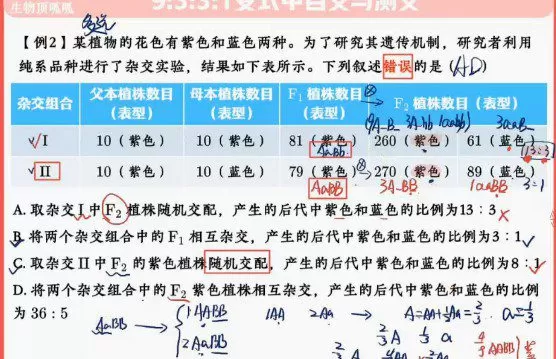 生物顶呱呱
9.5.3.1变式中自交与测交
多选
【例2】某植物的花色有紫色和蓝色两种。为了研究其遗传机制，研究者利用
纯系品种进行了杂交实验，结果如下表所示。下列叙述错误的是（AD）
杂交组合 父本植株数目（表型） 母本植株数目（表型） F₁植株数目（表型） F₂植株数目（表型）
9A-B- 3A-bb 1aabb 3aaB-
Ⅰ 10（紫色） 10（紫色） 81（紫色） 260（紫色） 61（蓝色）
AaBb 13:3
Ⅱ 10（紫色） 10（蓝色） 79（紫色） 270（紫色） 89（蓝色）
AaBB 3A-BB 1aaBB 3:1
A. 取杂交Ⅰ中F₂植株随机交配，产生的后代中紫色和蓝色的比例为13：3 ×
B. 将两个杂交组合中的F₁相互杂交，产生的后代中紫色和蓝色的比例为3：1 ✓
C. 取杂交Ⅱ中F₂的紫色植株随机交配，产生的后代中紫色和蓝色的比例为8：1 ✓
D. 将两个杂交组合中的F₂紫色植株相互杂交，产生的后代中紫色和蓝色的比例
为36：5
AaBB → 1AABB 1AA 2Aa → A=AA+½Aa=⅔ a=⅓
2AaBB ⅔A ⅓a 4/9AABB
⅔A